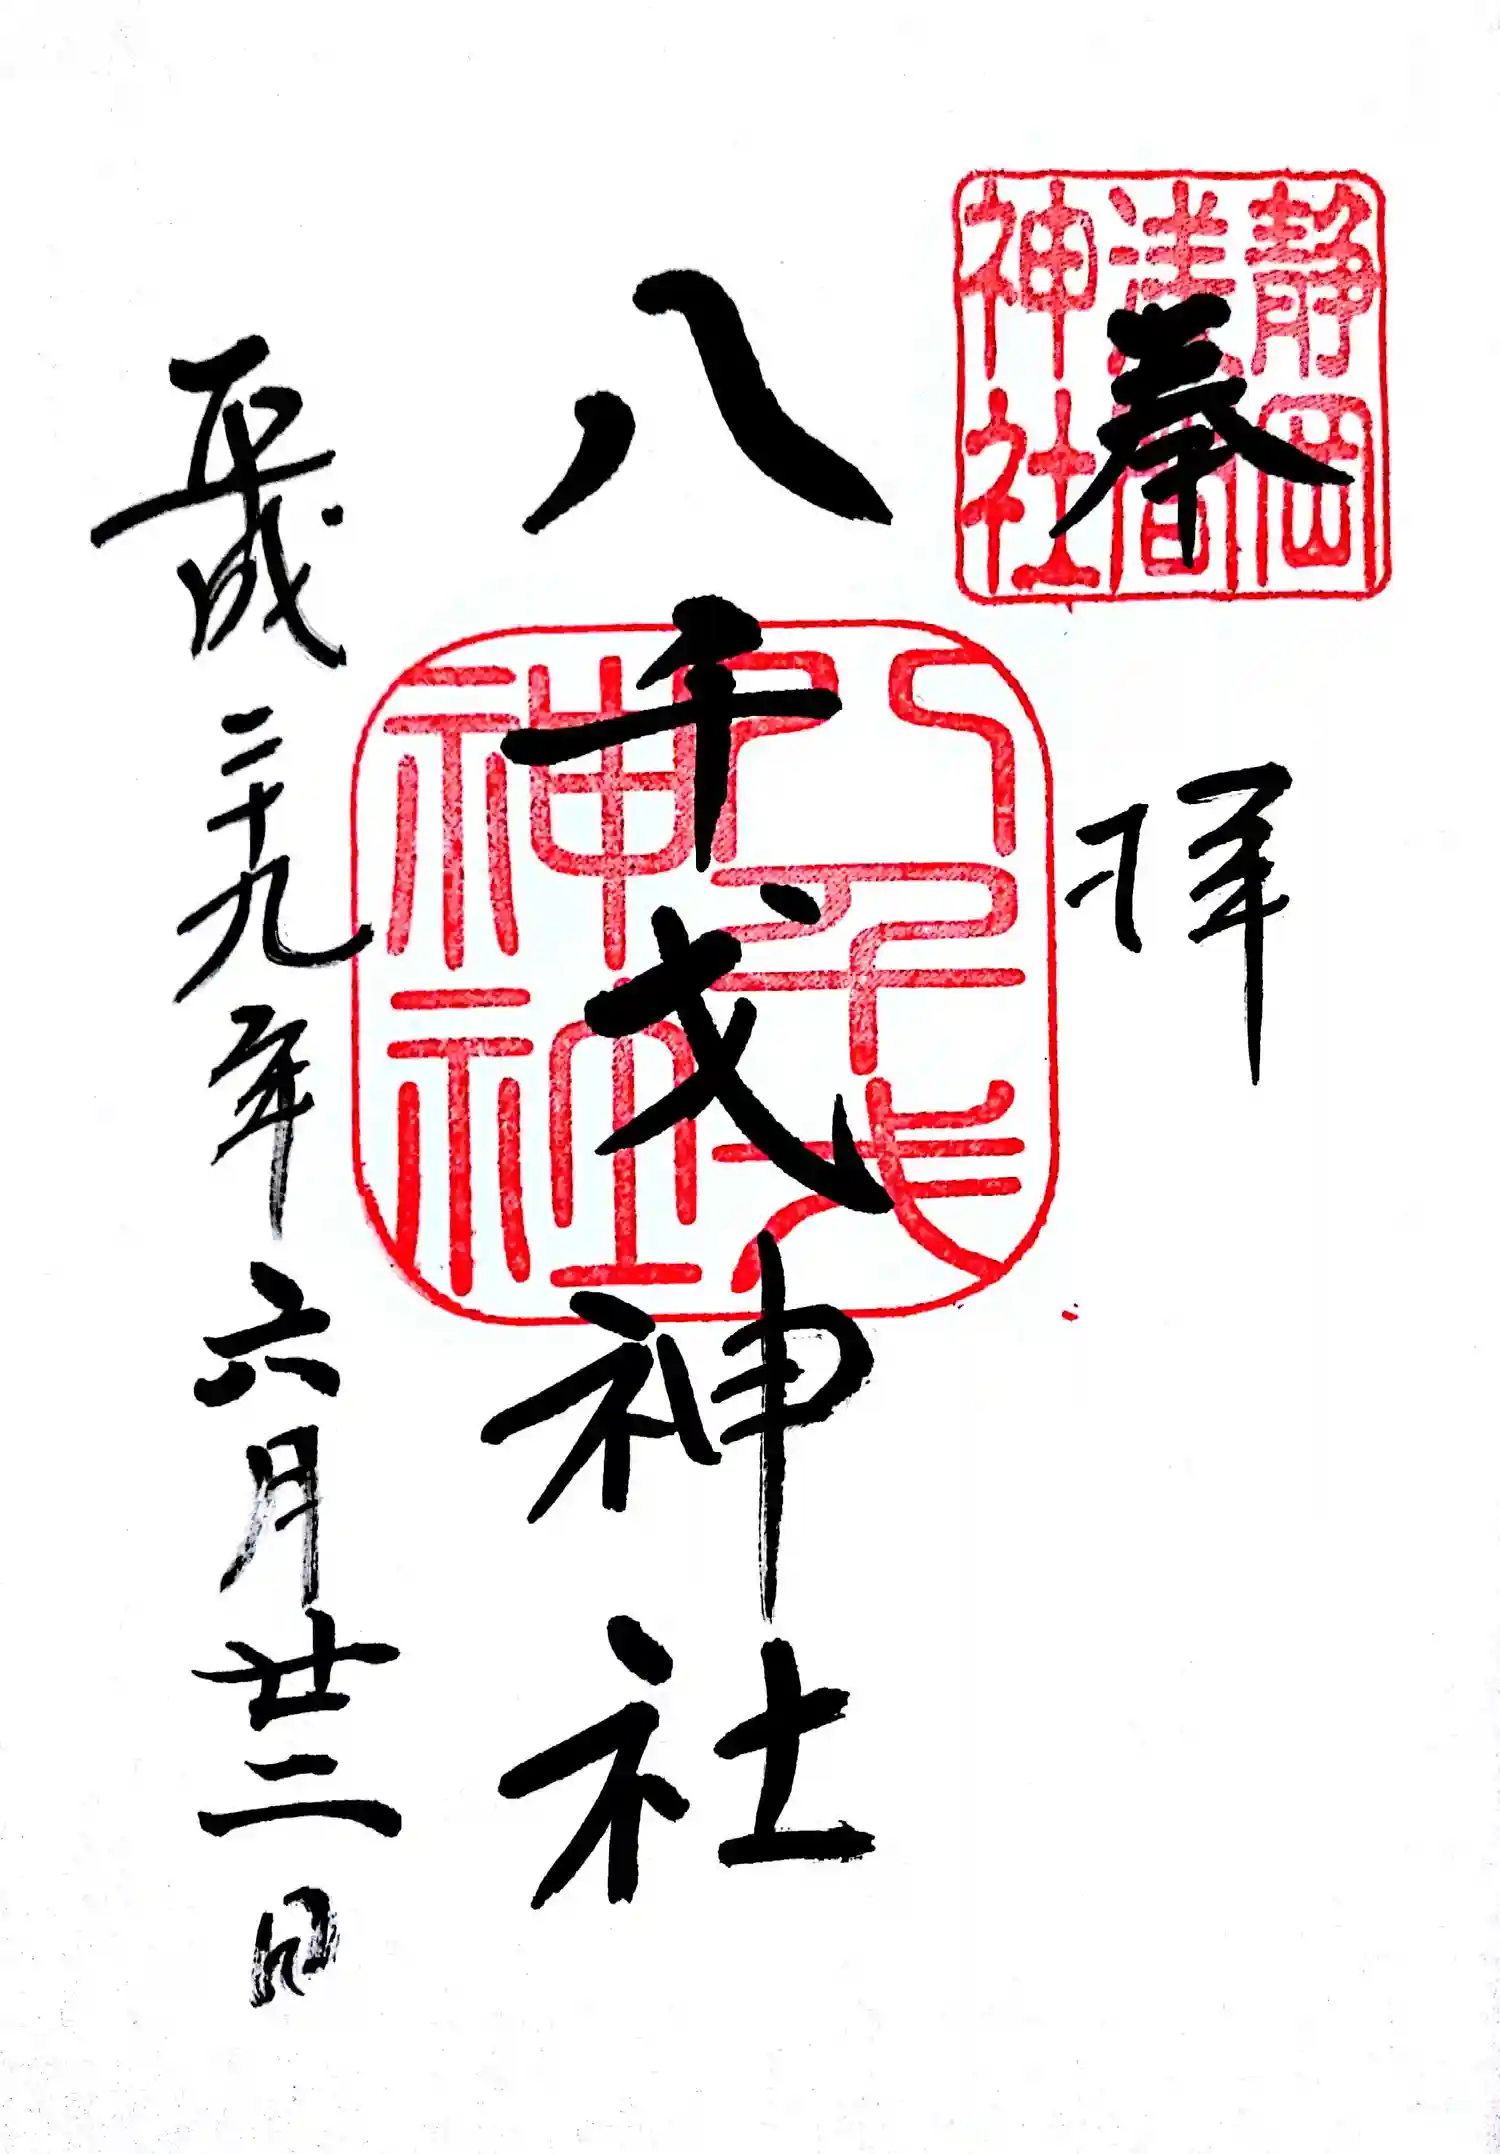 静岡
浅間
神社
奉拝
八千戈
神社
八千戈神社
平成二十九年六月廿二日